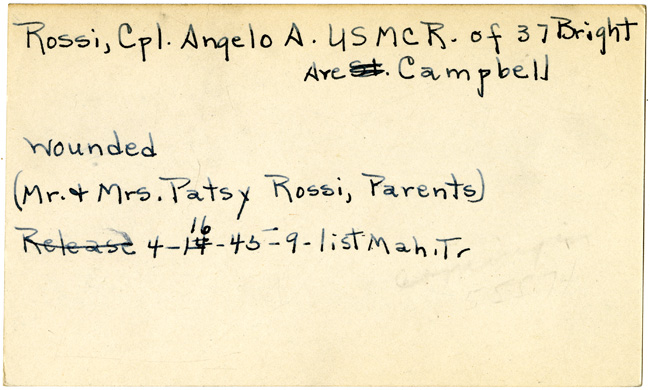 Rossi, Cpl. Angelo A. USMCR. of 37 Bright
Ave St. Campbell
wounded
(Mr. & Mrs. Patsy Rossi, Parents)
Release 4-16-45-9-list Mah. Tr